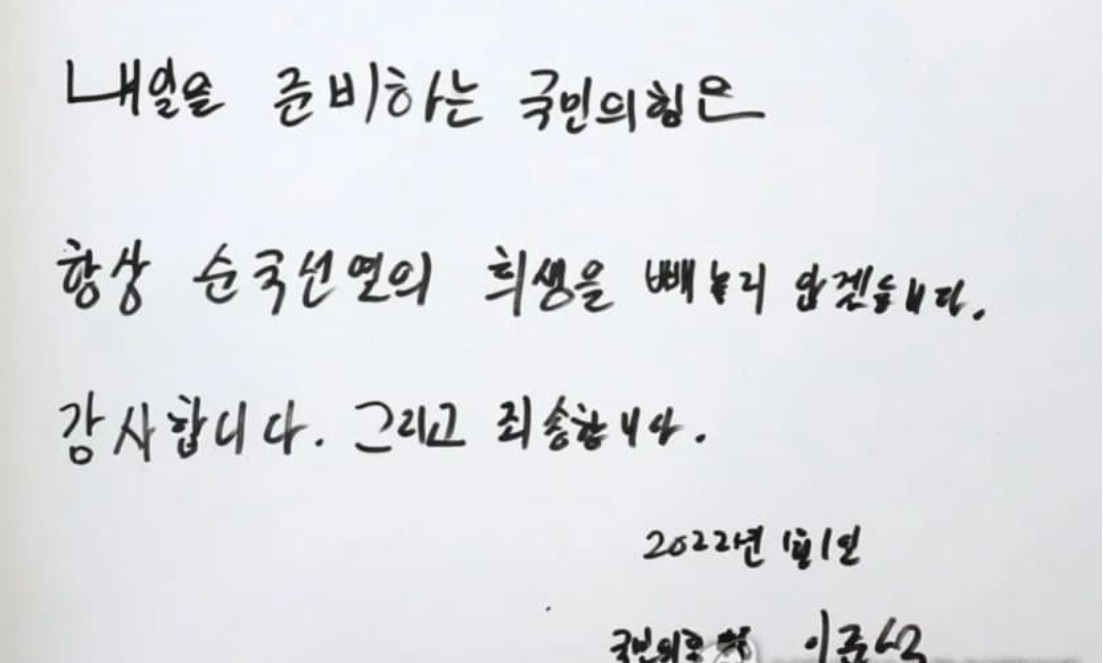 내일을 준비하는 국민의힘은
항상 순국선열의 희생을 빼놓지 않겠습니다.
감사합니다. 그리고 죄송합니다.
2022년 1월 1일
국민의힘 이준석